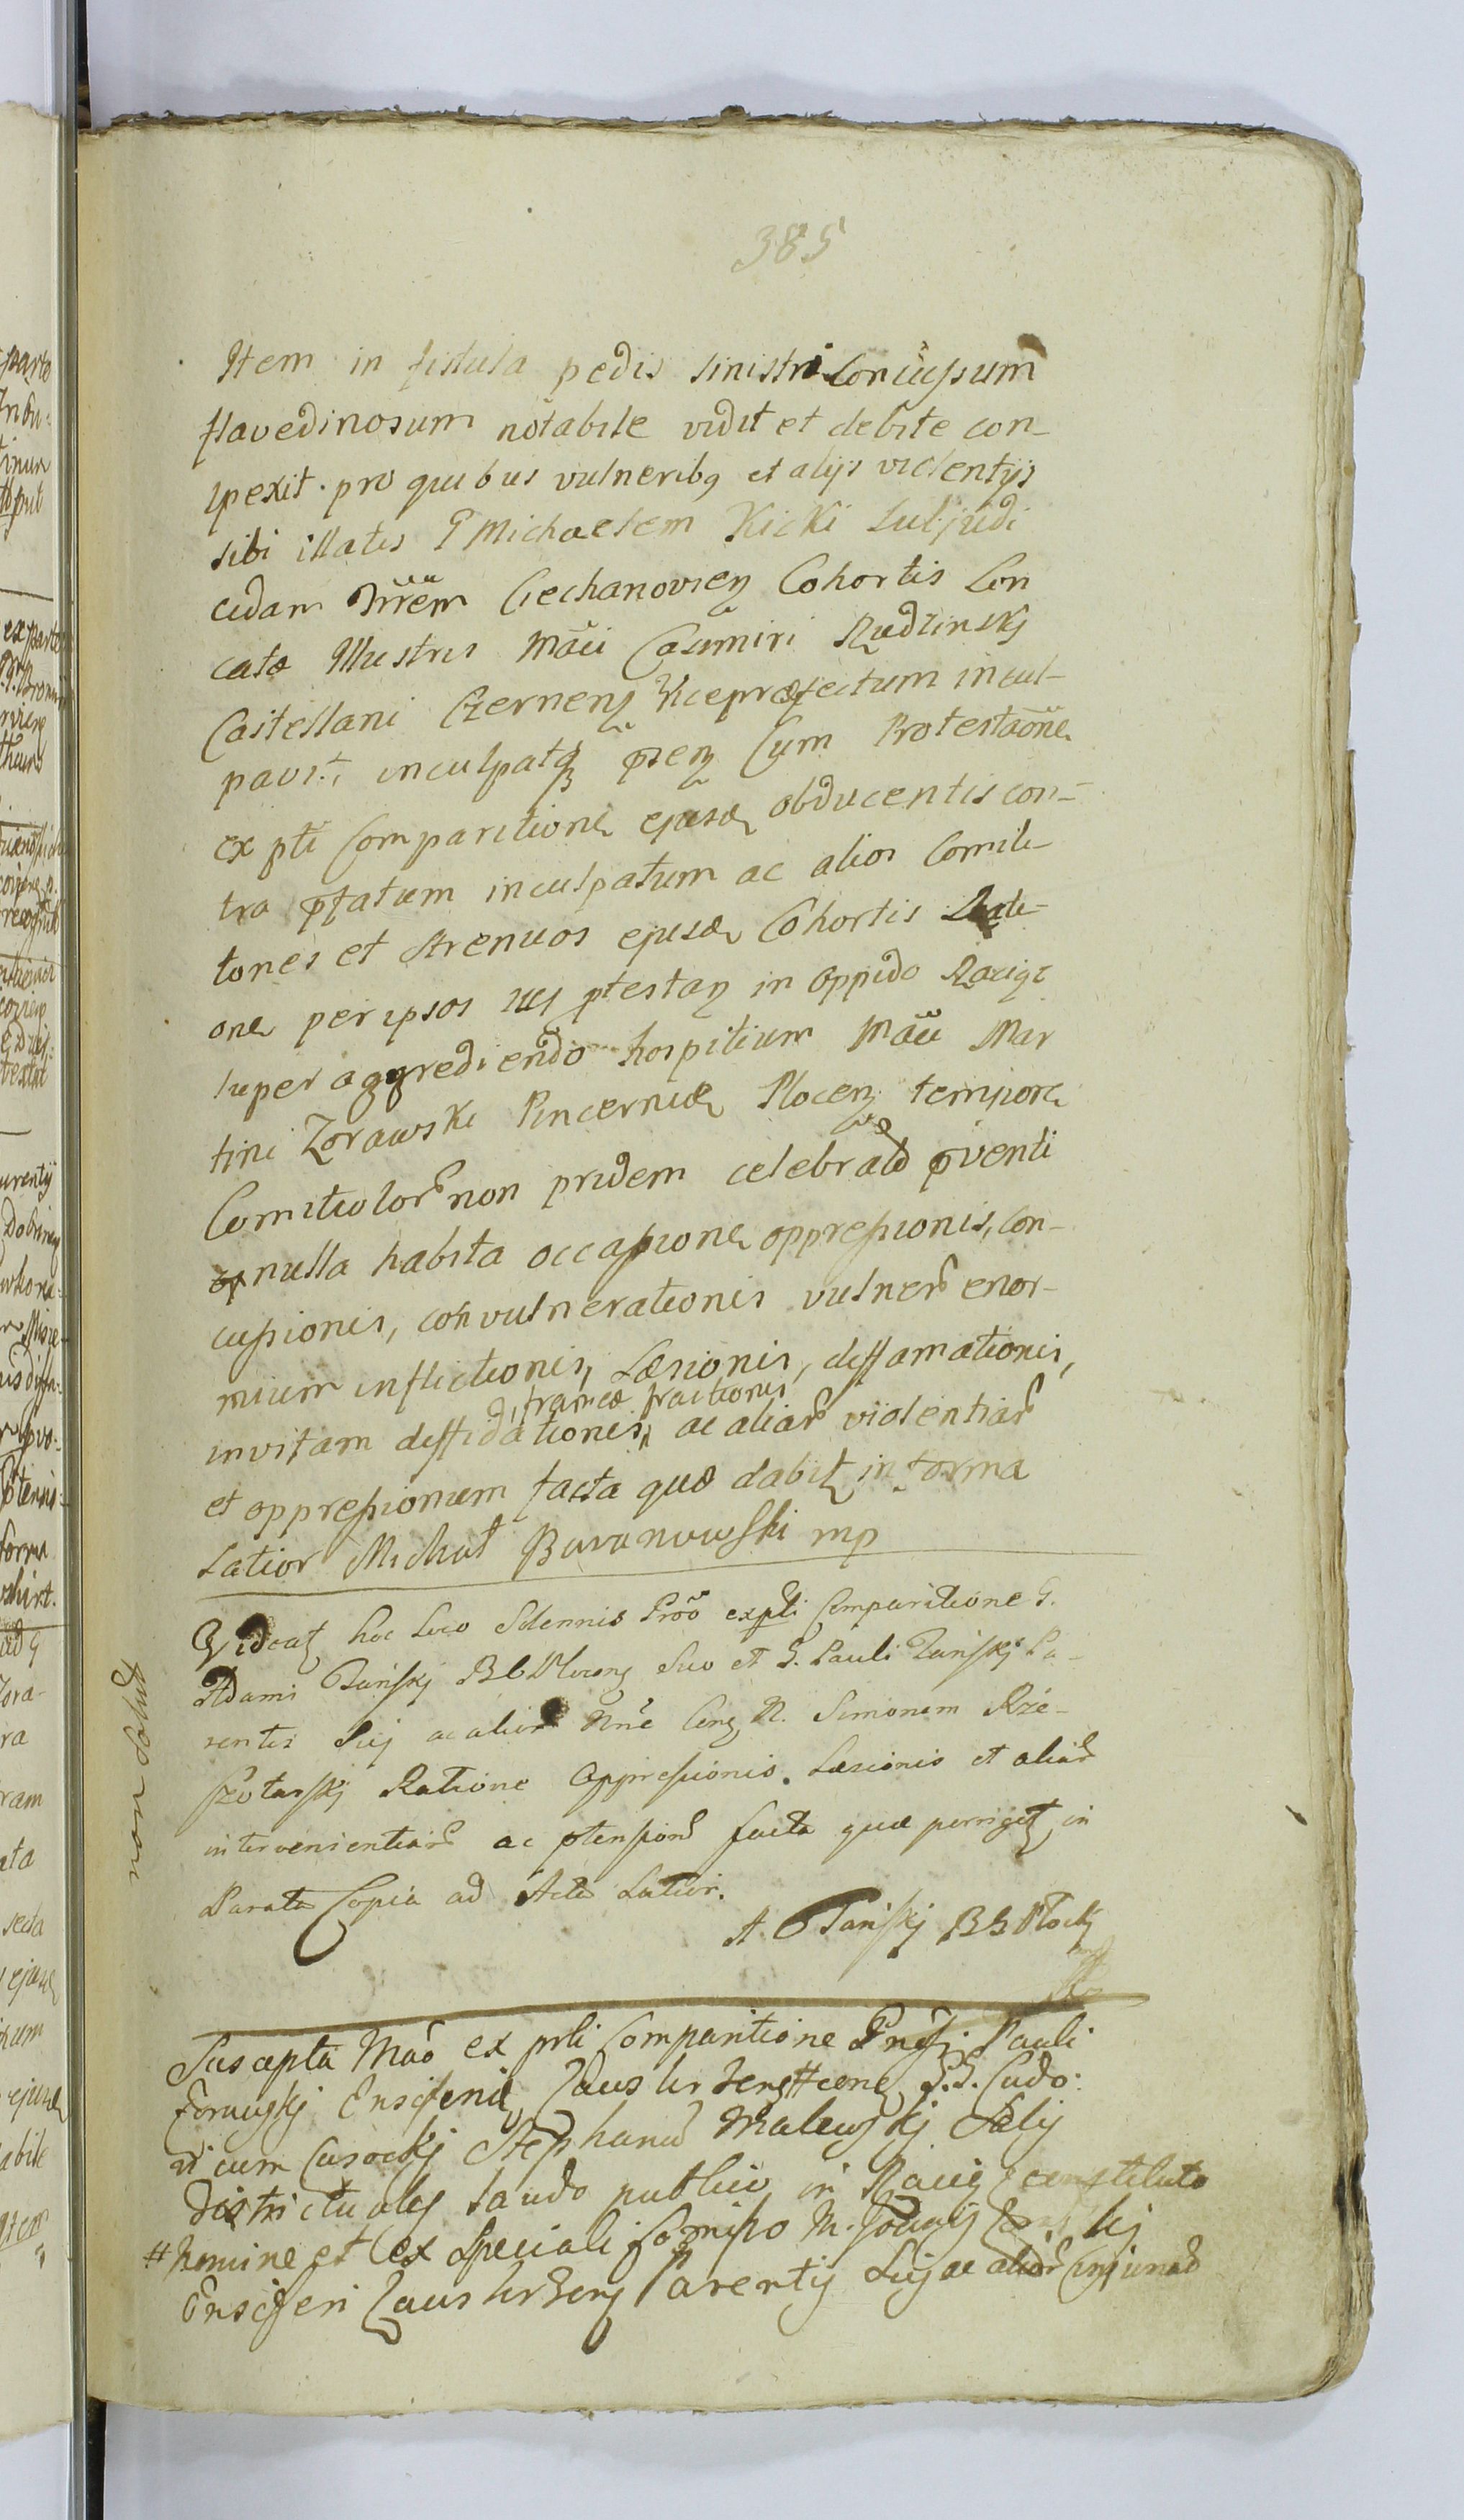 385
Item in fistula pedis sinistri Concussum
flavedinosum notabile vidit et debite con-
spexit. pro quibus vulneribq et alijs violentijs
sibi illatis G Michaelem Kicki Subjudi
cidam Trrem Ciechanovien Cohortis Lon
catæ Illustris Mãci Casimiri Rudzinskj
Castellani Czernen Viceprefectum incul-
pavit, inculpatq pren Cum Protestaõne
ex pti Comparitione ejusd obducentis con-
tra pfatum inculpatum ac alios Comili-
tones et strenuos ejusd Cohortis Rati-
one per ipsos ptestan in oppido Raciąż
super aggrediendo hospitium Mãci Mar
tini Zorawski Pincernid Plocen tempore
Comitiolor non pridem celebrato pventi
nulla habita occasione oppressionis, con-
cussionis, convulnerationis vulner enor-
mium inflictionis, Læsionis, diffamationis,
frameæ fractionis
invitam diffidationis, ac aliar violentiar
et oppressionum facta quæ dabit in forma
Latior Michał Baranowski mp
Videat hoc Loco Solennis Prõo ex pti Comparitione G.
Adami Tanskj BG Plocen Suo et G. Pauli Tanskj Pa-
rentis Suj ac alior Nne Cen N. Simonem Rze-
szotarskj Ratione Oppressionis. Læsionis et aliar
intervenientiar ac ptension facta quæ porriget in
Parata Copia ad Acta Latior.
A. Tanskj BG Plock
non solut
Suscepta Mão ex pti Comparitione Pauli
Ensiferid Zauskrzen # G.G. Ludo:
vicum Lasockj Stephanum Malewskj
Districtuales Laudo publico in Raciąż constituto
# Nomine et ex Speciali Comisso M.
Ensiferi Zauskrzen Parentis Suj ac alior